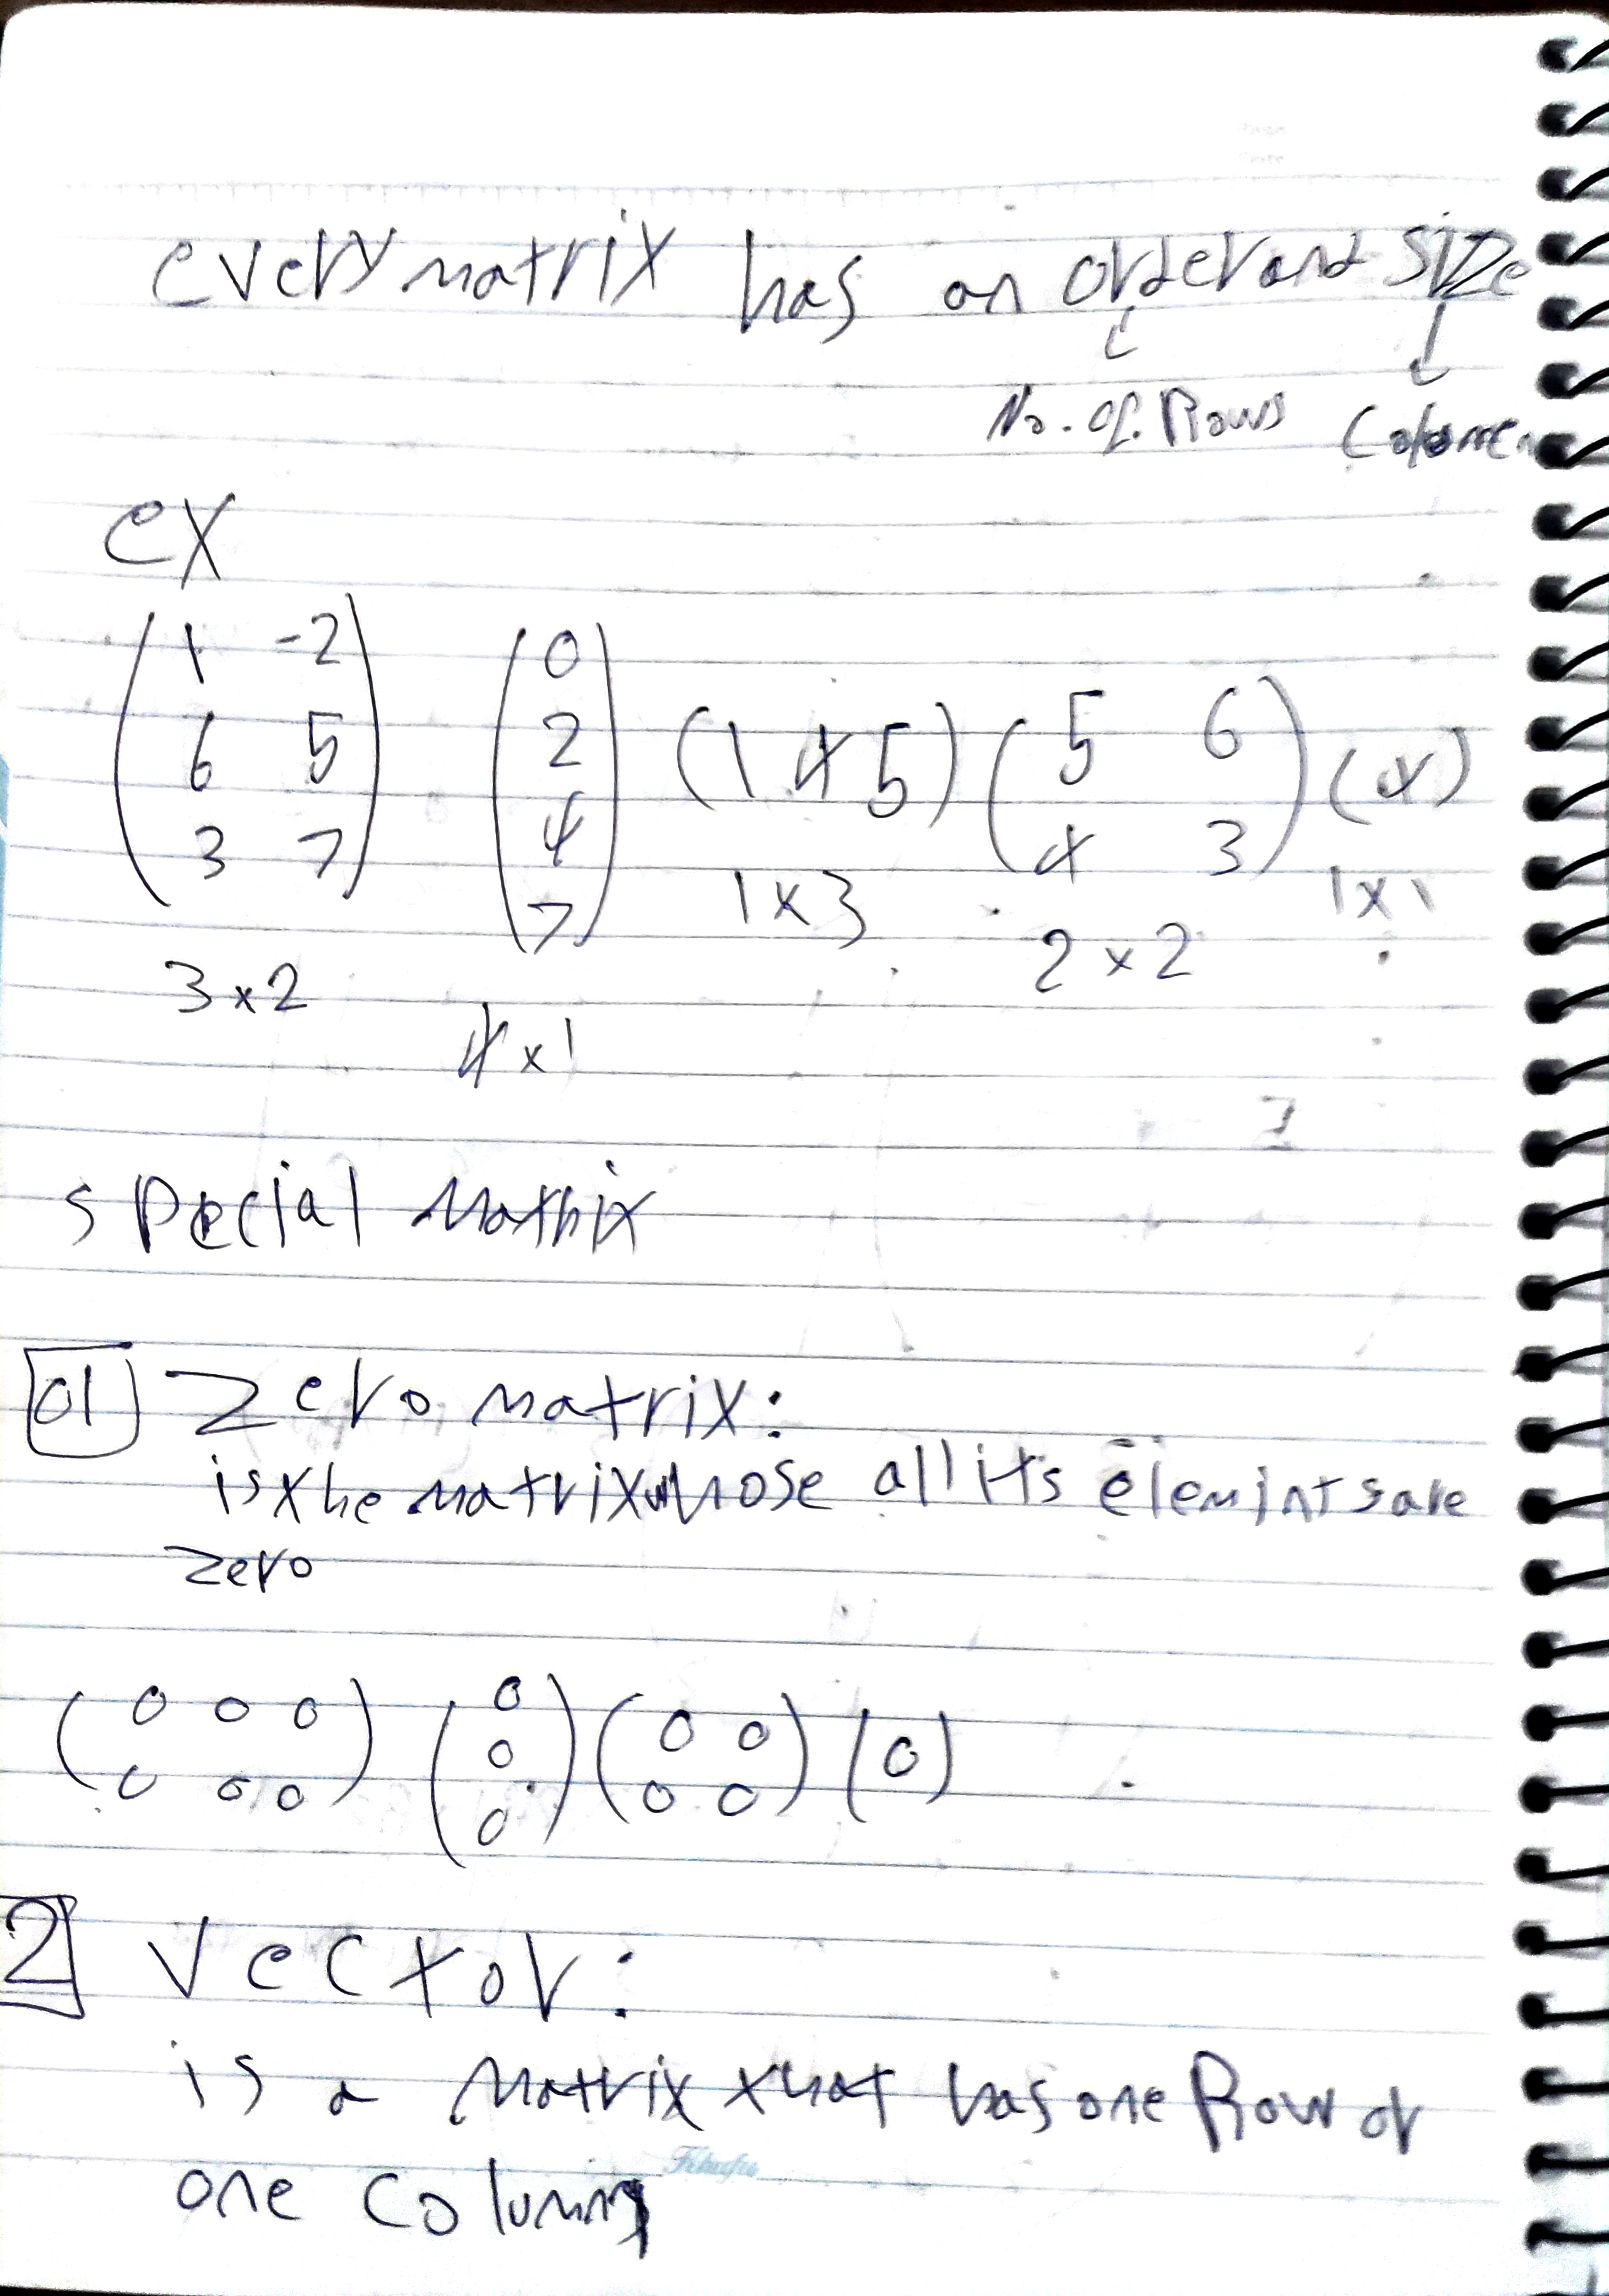 every matrix has an order and size
No. of. Rows
ex
1 -2 0
6 5 2 (1 4 5) 5 6 (4)
3 7 4 4 3
7 1x3 2x2 1x1
3x2
4x1
special Matrix
01 Zero matrix:
is the matrix whose all its elemints are
zero
(0 0 0 0 0 0) (0 0 0) (0 0 0 0) (0)
2 Vector:
is a Matrix that has one Row or
one column